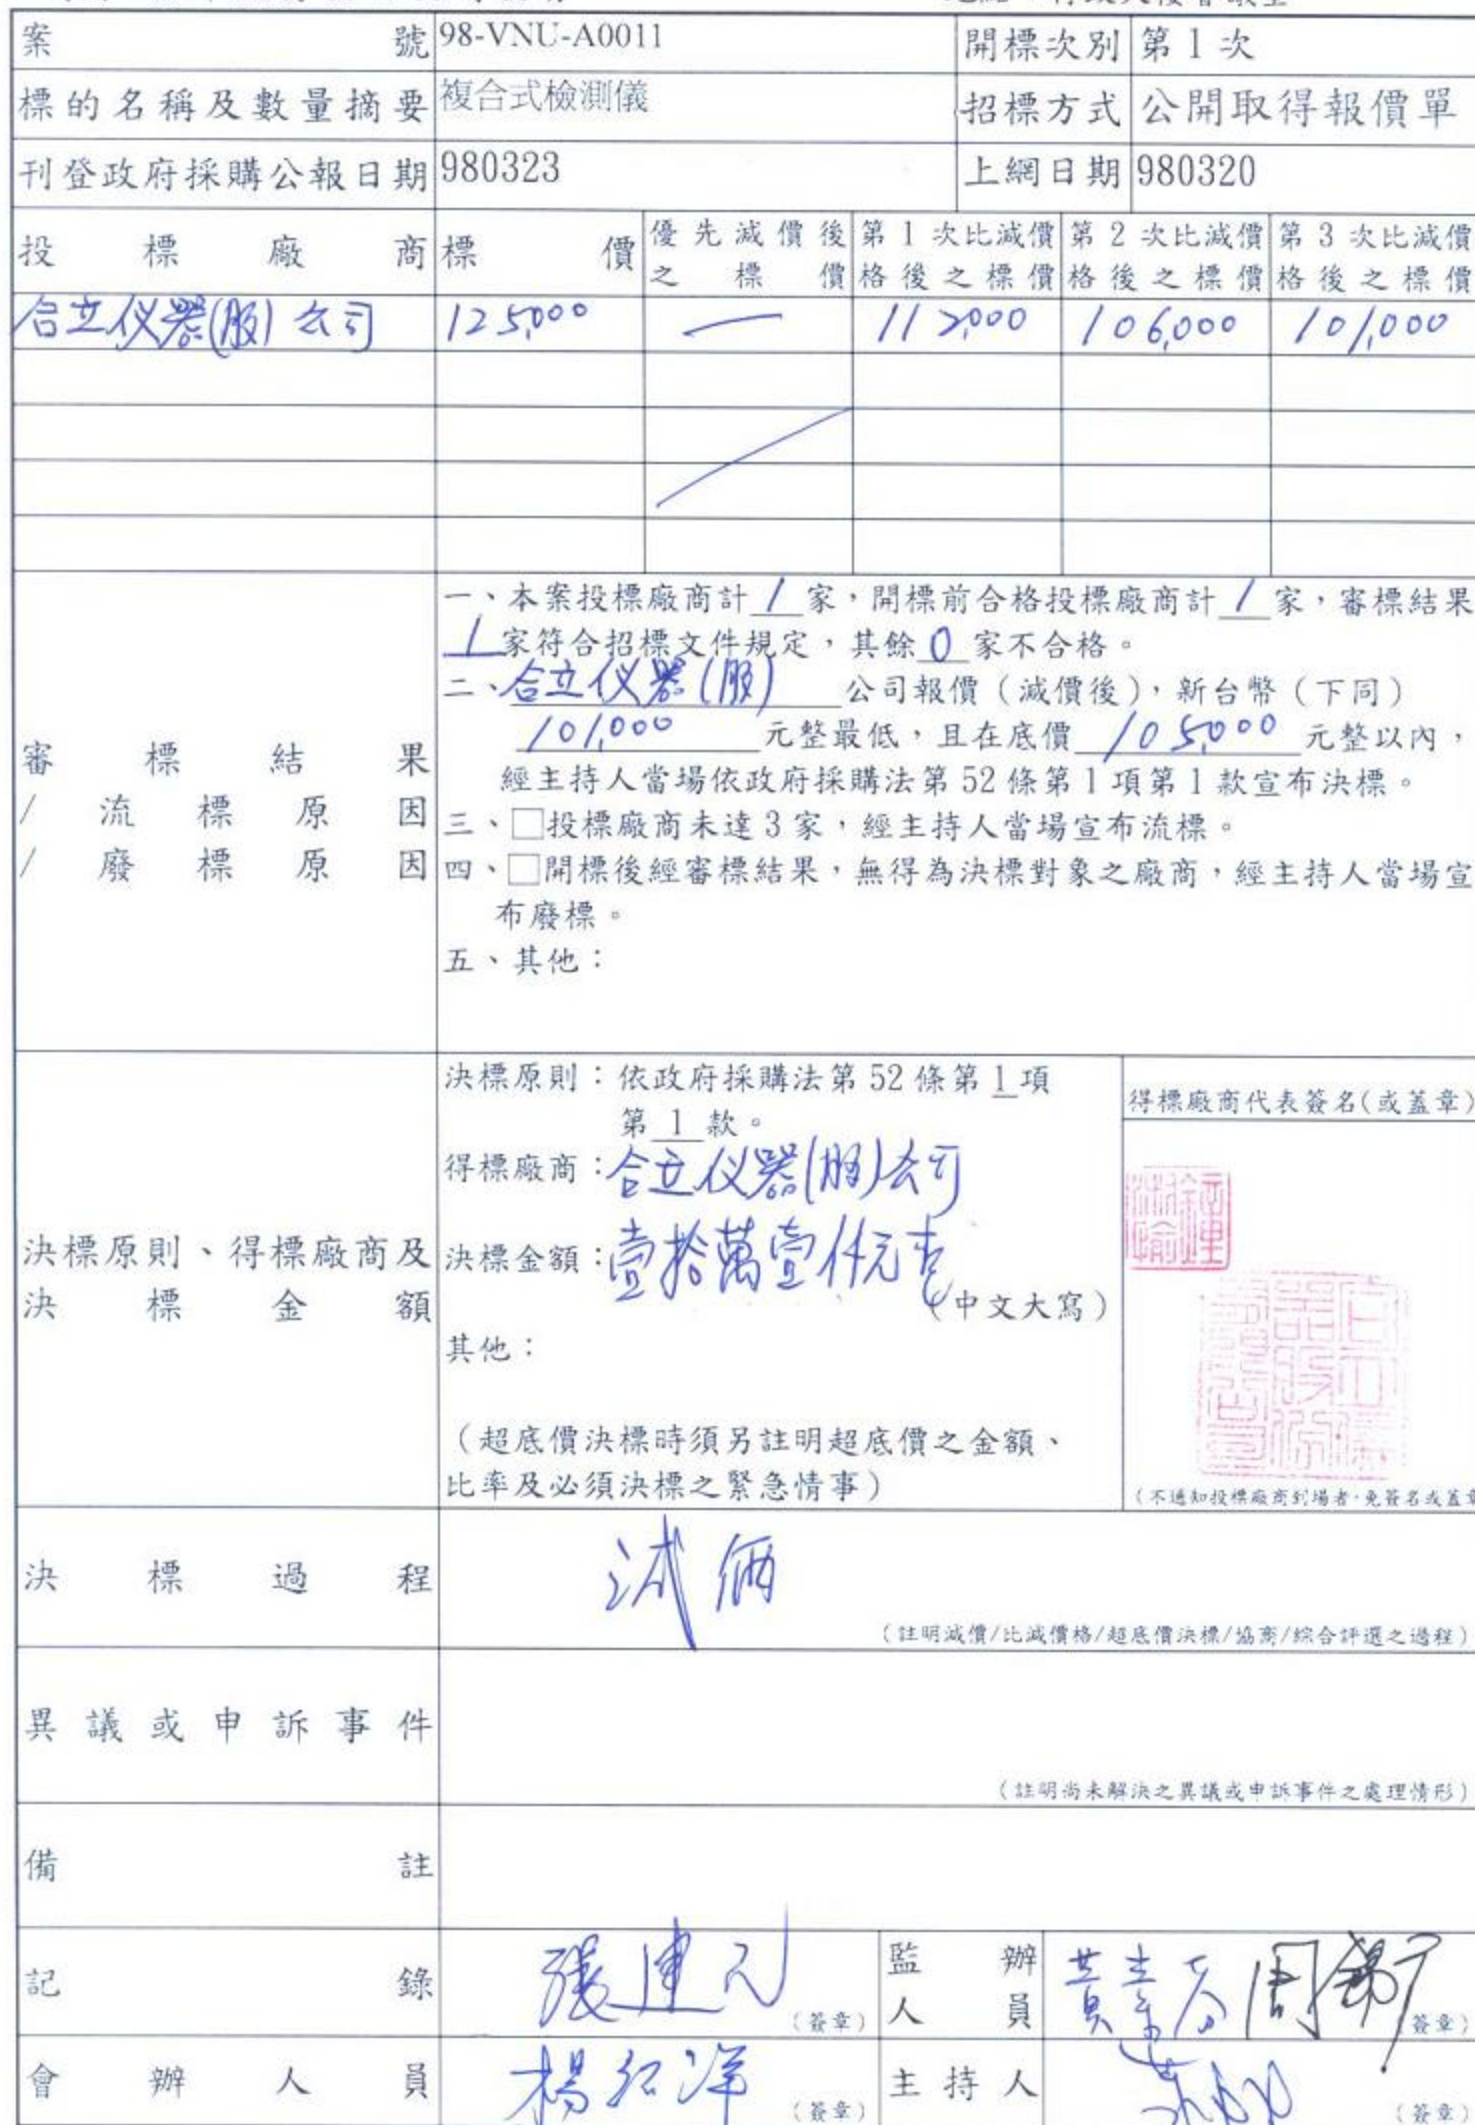 案號 98-VNU-A0011 開標次別 第 1 次
標的名稱及數量摘要 複合式檢測儀 招標方式 公開取得報價單
刊登政府採購公報日期 980323 上網日期 980320
投標廠商 標價 優先減價後之標價 第 1 次比減價格後之標價 第 2 次比減價格後之標價 第 3 次比減價格後之標價
合立仪器(股)公司 125,000 — 112,000 106,000 101,000
審標結果
/流標原因
/廢標原因
一、本案投標廠商計 1 家,開標前合格投標廠商計 1 家,審標結果
1 家符合招標文件規定,其餘 0 家不合格。
二、合立仪器(股) 公司報價(減價後),新台幣(下同)
101,000 元整最低,且在底價 105,000 元整以內,
經主持人當場依政府採購法第 52 條第 1 項第 1 款宣布決標。
三、□投標廠商未達 3 家,經主持人當場宣布流標。
四、□開標後經審標結果,無得為決標對象之廠商,經主持人當場宣
布廢標。
五、其他:
決標原則、得標廠商及
決標金額
決標原則:依政府採購法第 52 條第 1 項
第 1 款。
得標廠商:合立仪器(股)公司
決標金額:壹拾萬壹仟元
(中文大寫)
其他:
(超底價決標時須另註明超底價之金額、
比率及必須決標之緊急情事)
得標廠商代表簽名(或蓋章)
(不通知投標廠商到場者,免簽名或蓋章
決標過程 減価
(註明減價/比減價格/超底價決標/協商/綜合評選之過程)
異議或申訴事件
(註明尚未解決之異議或申訴事件之處理情形)
備註
記錄 張建 (簽章) 監辦人員 (簽章)
會辦人員 楊 (簽章) 主持人 (簽章)